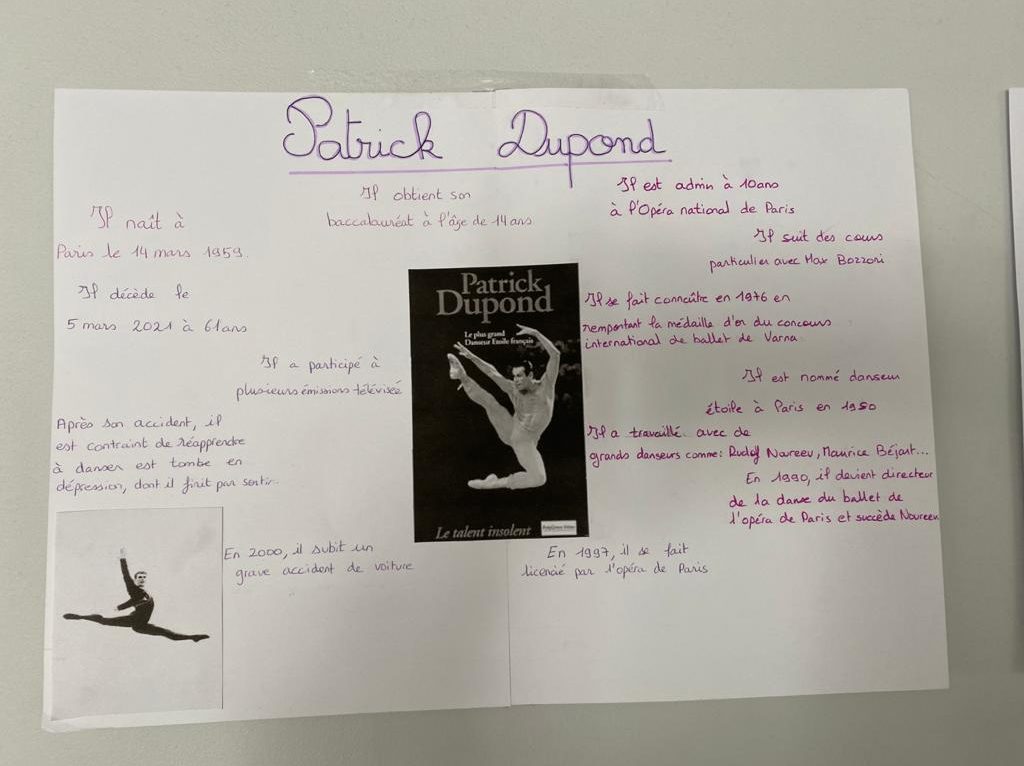 Patrick Dupond
Il naît à
Paris le 14 mars 1959.
Il décède le
5 mars 2021 à 61 ans
Il obtient son
baccalauréat à l'âge de 14 ans
Il est admin à 10 ans
à l'Opéra national de Paris
Il suit des cours
particulier avec Max Bozzoni
Il se fait connaître en 1976 en
remportant la médaille d'or du concours
international de ballet de Varna.
Il est nommé danseur
étoile à Paris en 1980
Il a travaillé avec de
grands danseurs comme: Rudolf Noureev, Maurice Béjart...
En 1990, il devient directeur
de la danse du ballet de
l'opéra de Paris et succède Noureev
En 1997, il se fait
licencié par l'opéra de Paris
En 2000, il subit un
grave accident de voiture
Après son accident, il
est contraint de réapprendre
à danser est tombe en
dépression, dont il finit par sortir.
Il a participé à
plusieurs émissions télévisée
Patrick
Dupond
Le plus grand
Danseur Etoile français
Le talent insolent